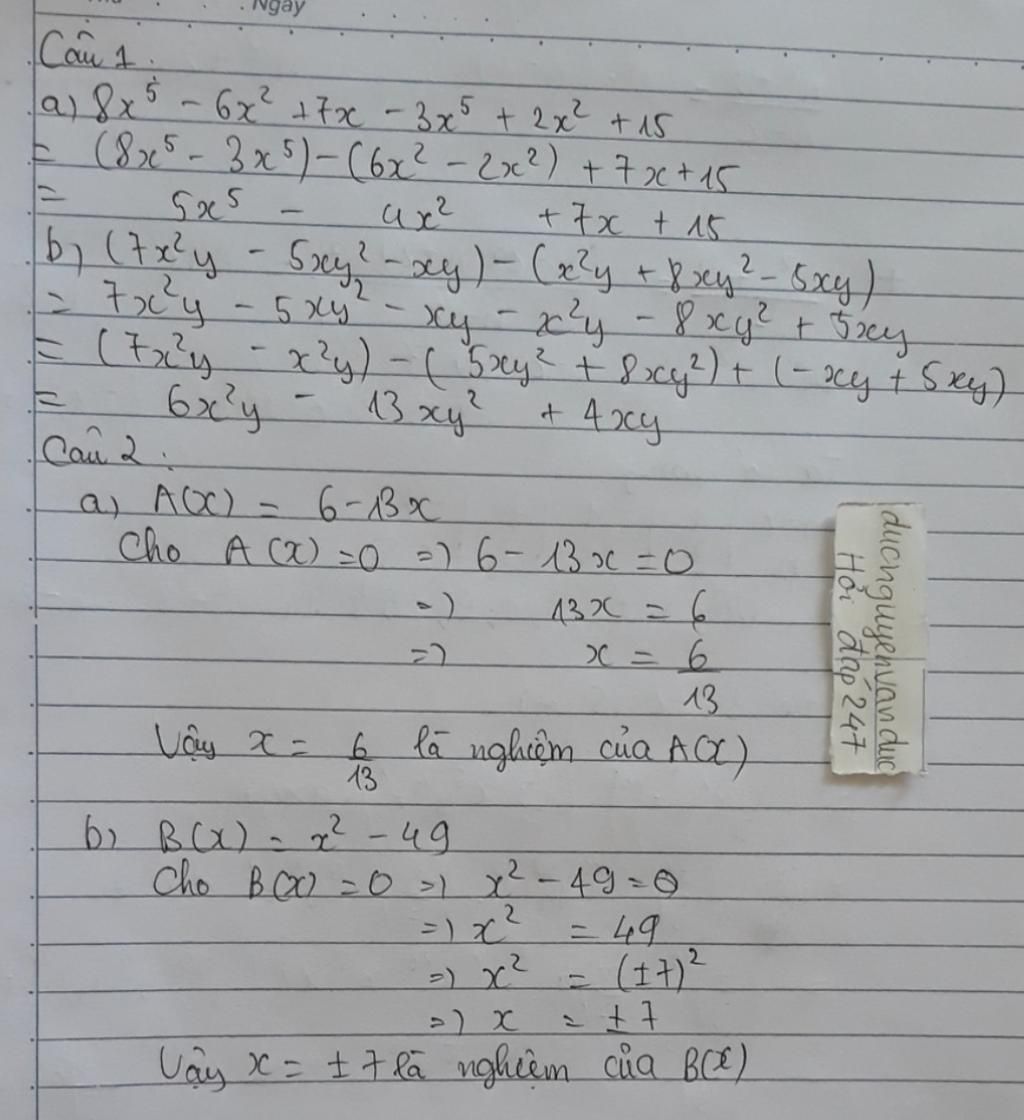 Ngày
Câu 1.
a) 8x⁵ - 6x² + 7x - 3x⁵ + 2x² + 15
= (8x⁵ - 3x⁵) - (6x² - 2x²) + 7x + 15
= 5x⁵ - 4x² + 7x + 15
b) (7x²y - 5xy² - xy) - (x²y + 8xy² - 5xy)
= 7x²y - 5xy² - xy - x²y - 8xy² + 5xy
= (7x²y - x²y) - (5xy² + 8xy²) + (-xy + 5xy)
= 6x²y - 13xy² + 4xy
Câu 2.
a) A(x) = 6 - 13x
Cho A(x) = 0 => 6 - 13x = 0
=> 13x = 6
=> x = 6/13
Vậy x = 6/13 là nghiệm của A(x)
b) B(x) = x² - 49
Cho B(x) = 0 => x² - 49 = 0
=> x² = 49
=> x² = (±7)²
=> x = ±7
Vậy x = ±7 là nghiệm của B(x)
ducnguyenvanduc
Hỏi đáp 247